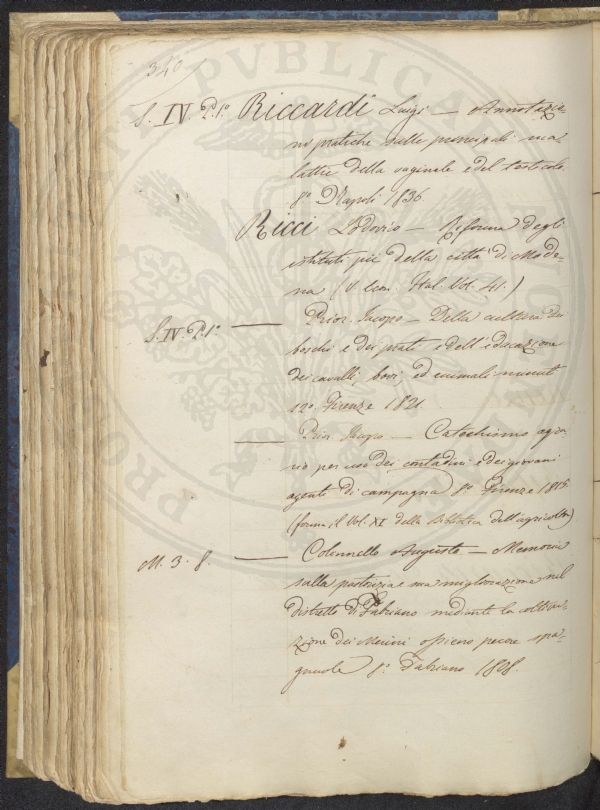 340
S. IV. P. 1º Riccardi Luigi — Annotazio-
ni pratiche sulle principali ma-
lattie della vaginale e del testicolo
8º Napoli 1836
Ricci Lodovico — Riforma degli
istituti pii della città di Mode-
na (V. Econ. Ital. Vol. 41.)
S. IV. P. 1º — Prior. Jacopo — Della cultura dei
boschi e dei prati e dell'educazione
dei cavalli, bovi, ed animali minuti
12º Firenze 1821.
— Prior. Jacopo — Catechismo agra-
rio per uso dei contadini e dei giovani
agenti di campagna 8º Firenze 1815
(forma il Vol. XI della Biblioteca dell'agricoltore)
M. 3. 8. — Colonnello Augusto — Memoria
sulla pastorizia e sua migliorazione nel
distretto di Fabriano mediante la coltiva-
zione dei Merini ossieno pecore spa-
gnuole 8º Fabriano 1808.
PUBLICA